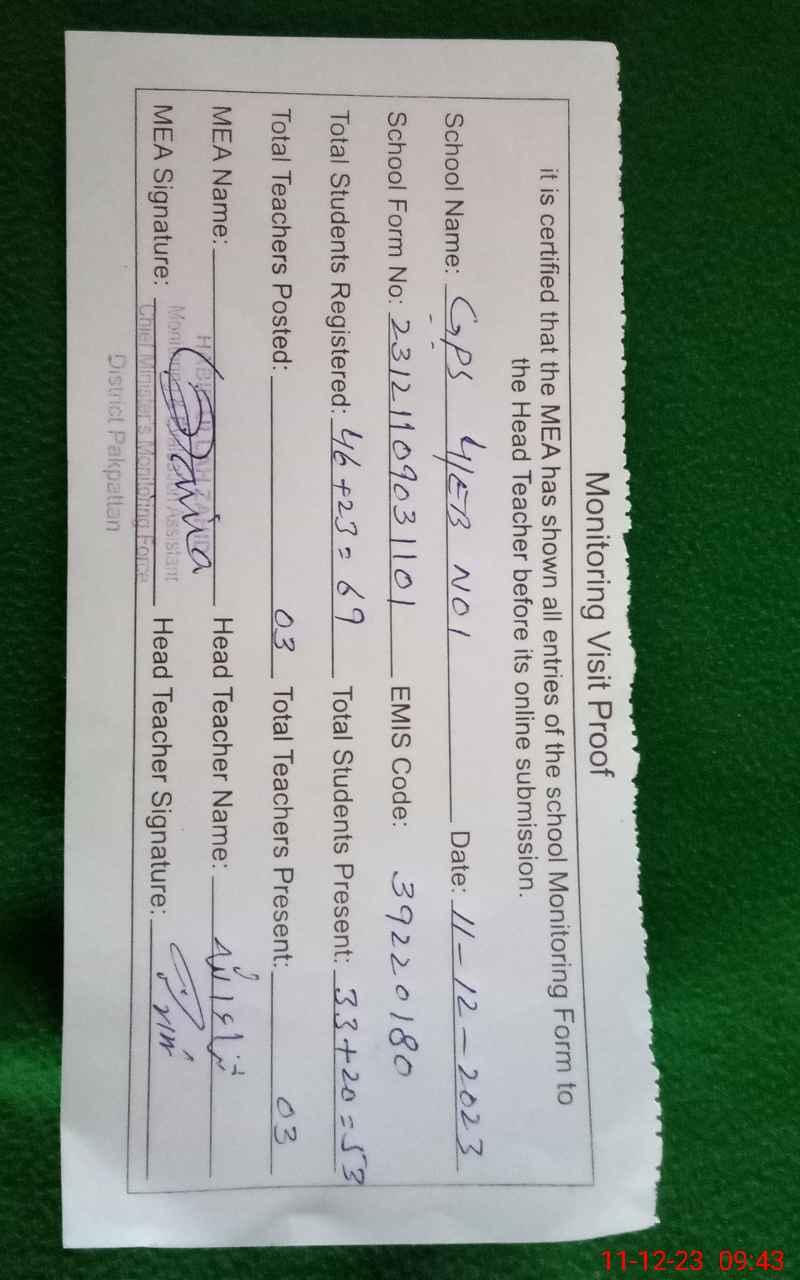 Monitoring Visit Proof
it is certified that the MEA has shown all entries of the school Monitoring Form to
the Head Teacher before its online submission.
School Name: GPS 4/EB NO1 Date: 11-12-2023
School Form No: 23121109031101 EMIS Code: 39220180
Total Students Registered: 46+23=69 Total Students Present: 33+20=53
Total Teachers Posted: 03 Total Teachers Present: 03
MEA Name: Head Teacher Name:
MEA Signature: Head Teacher Signature:
Assistant
Chief Minister's Monitoring Force
District Pakpattan
11-12-23 09:43